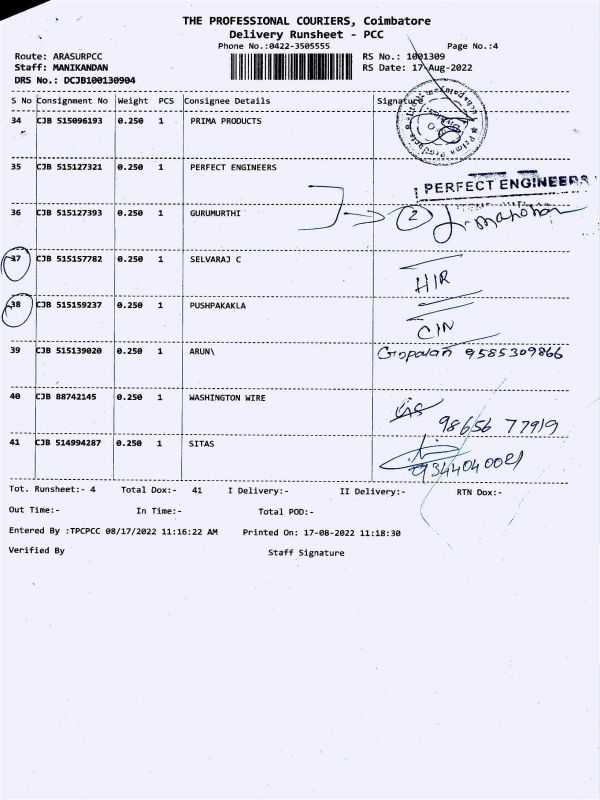 THE PROFESSIONAL COURIERS, Coimbatore
Delivery Runsheet - PCC
Phone No.:0422-3505555 Page No.:4
Route: ARASURPCC RS No.: 1001309
Staff: MANIKANDAN RS Date: 17-Aug-2022
DRS No.: DCJB100130904
S No Consignment No Weight PCS Consignee Details Signature
34 CJB 515096193 0.250 1 PRIMA PRODUCTS
35 CJB 515127321 0.250 1 PERFECT ENGINEERS
PERFECT ENGINEERS
36 CJB 515127393 0.250 1 GURUMURTHI 2
37 CJB 515157782 0.250 1 SELVARAJ C
38 CJB 515159237 0.250 1 PUSHPAKAKLA
39 CJB 515139020 0.250 1 ARUN\ Gopalan 9585309866
40 CJB 88742145 0.250 1 WASHINGTON WIRE
98656 77919
41 CJB 514994287 0.250 1 SITAS
Tot. Runsheet:- 4 Total Dox:- 41 I Delivery:- II Delivery:- RTN Dox:-
Out Time:- In Time:- Total POD:-
Entered By :TPCPCC 08/17/2022 11:16:22 AM Printed On: 17-08-2022 11:18:30
Verified By Staff Signature